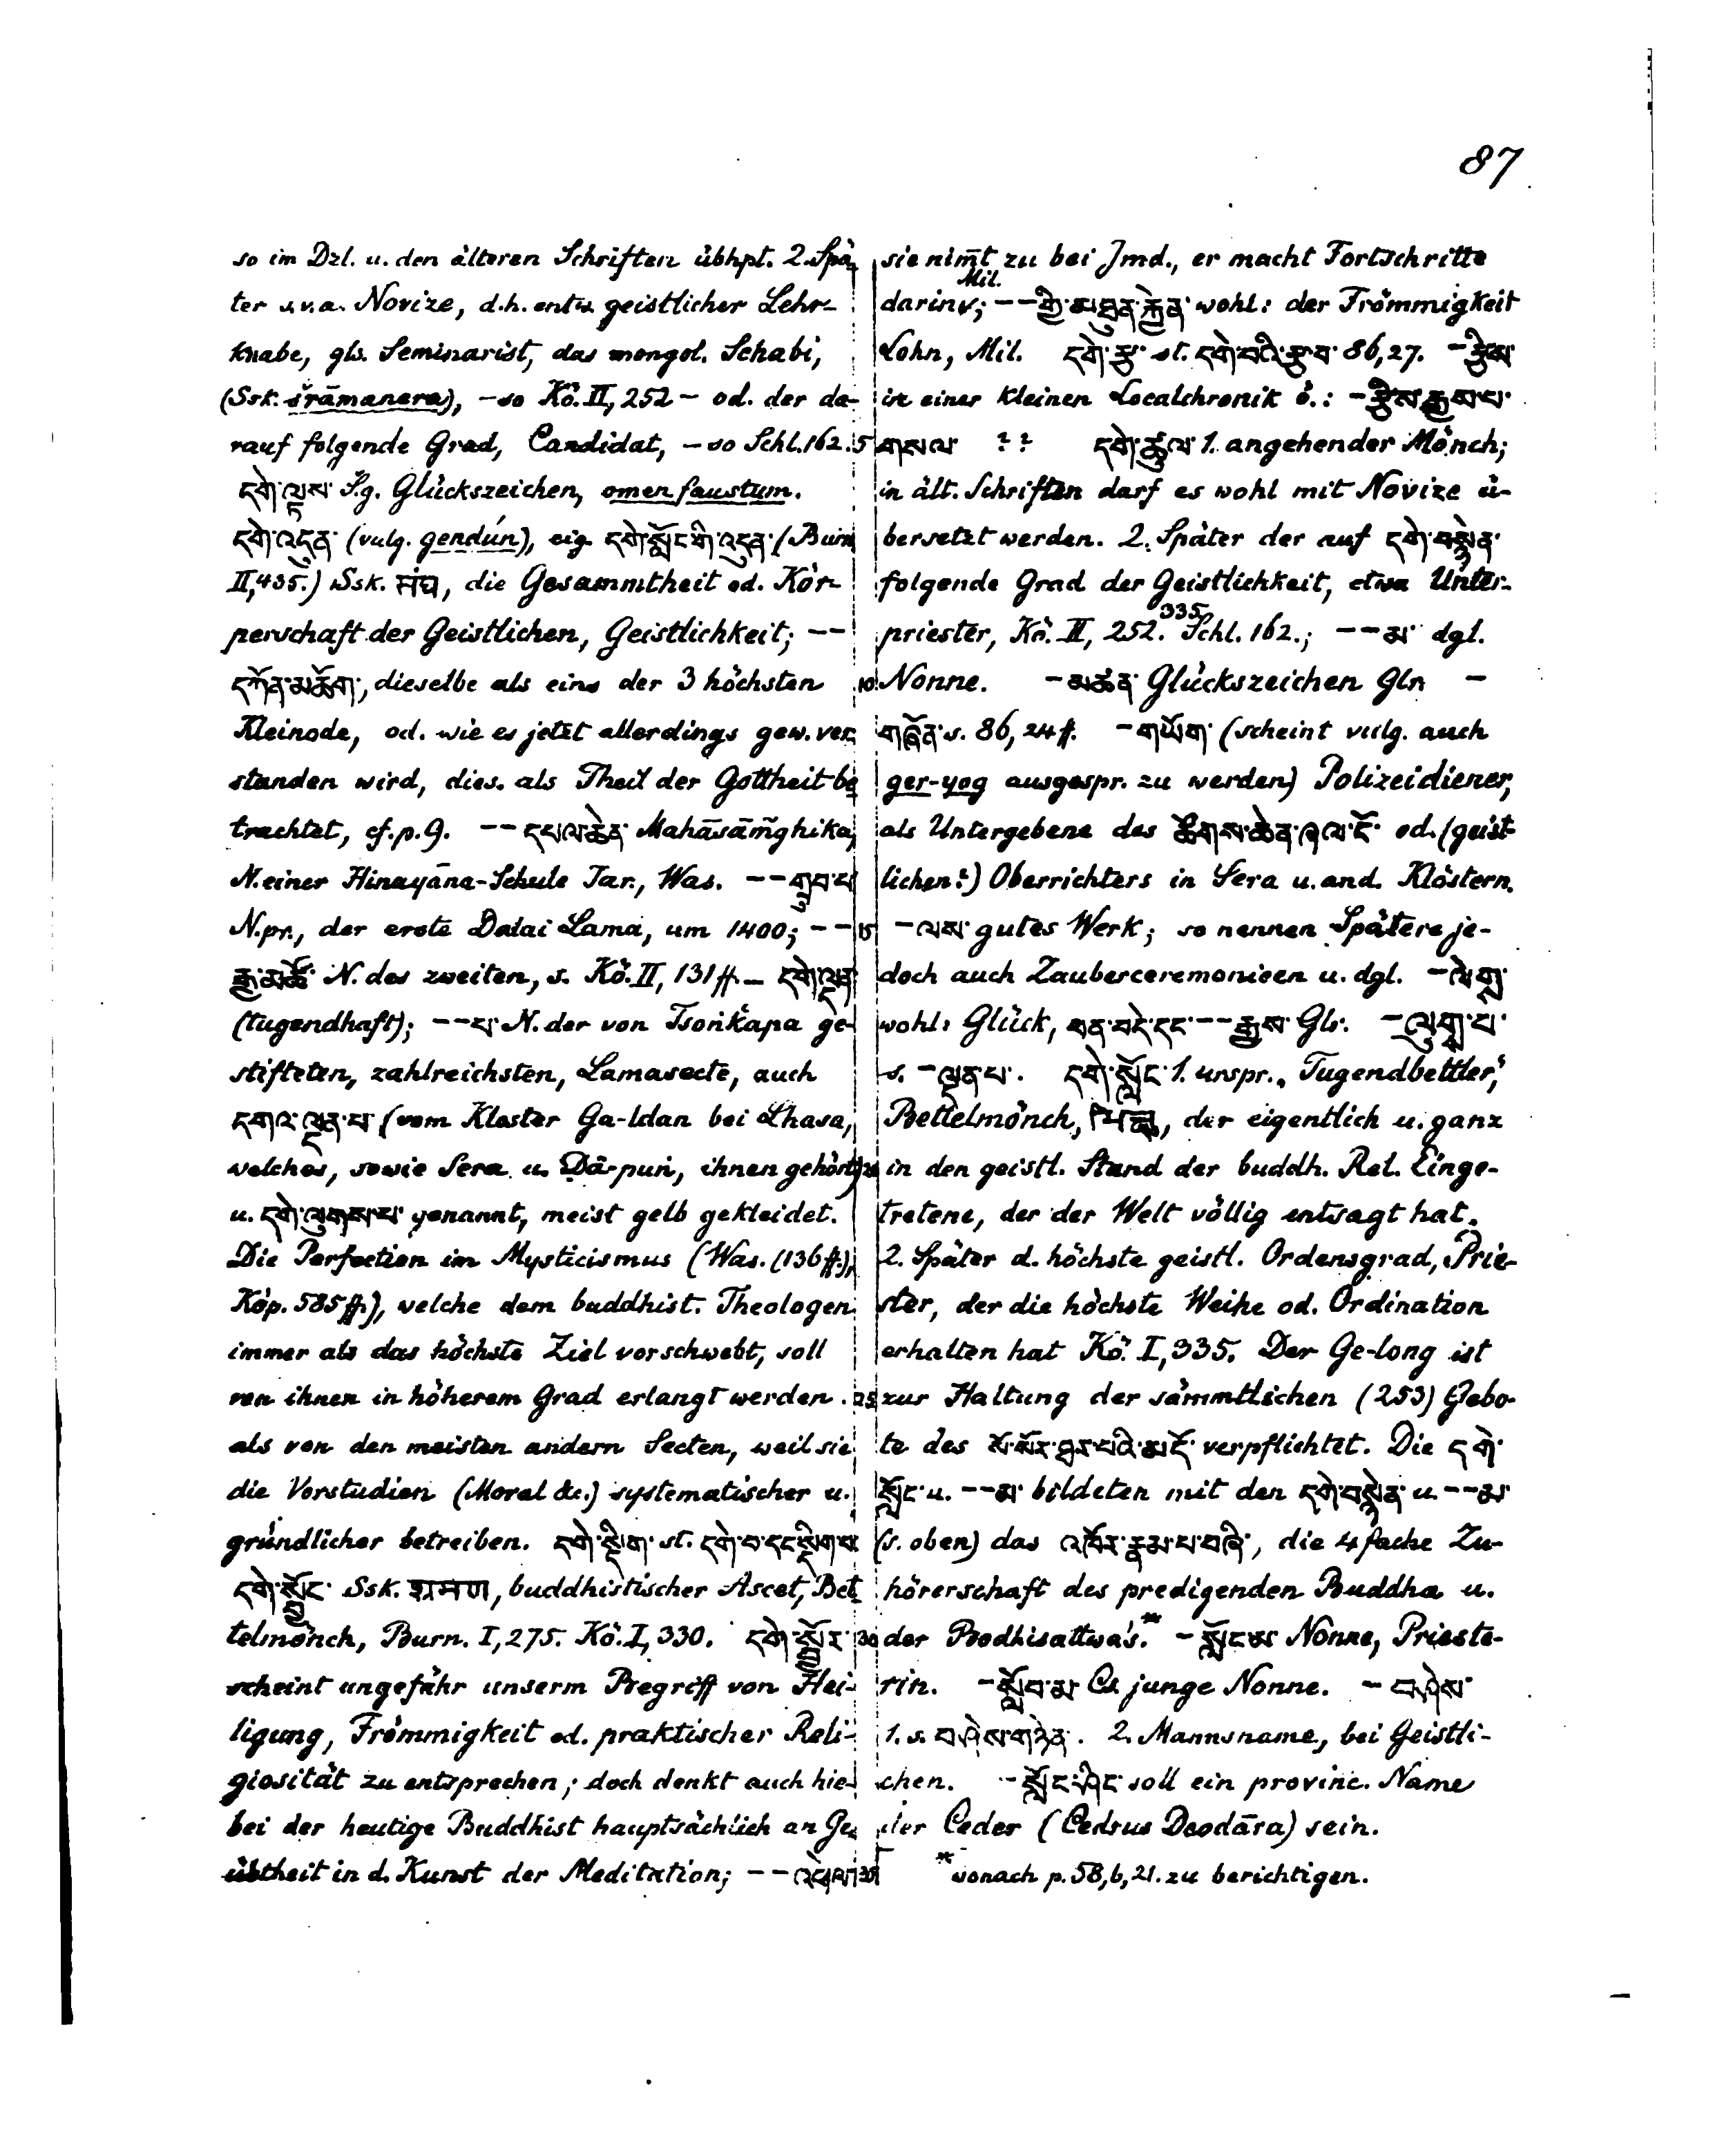 87
so im Dzl. u. den älteren Schriften übhpt. 2. Spä-
ter s.v.a. Novize, d.h. entw. geistlicher Lehr-
knabe, gls. Seminarist, das mongol. Schabi,
(Ssk. šrāmanera), – so Kö. II, 252 – od. der da-
rauf folgende Grad, Candidat, – so Schl. 162. 5
དགེ་ལྟས་ S.g. Glückszeichen, omen faustum.
དགེ་འདུན་ (vulg. gendún), eig. དགེ་སློང་གི་འདུན་ (Burn.
II, 435.) Ssk. संघ, die Gesammtheit od. Kör-
perschaft der Geistlichen, Geistlichkeit; ––
དཀོན་མཆོག་, dieselbe als eins der 3 höchsten 10
Kleinode, od. wie es jetzt allerdings gew. ver-
standen wird, dies. als Theil der Gottheit be-
trachtet, cf. p. 9. –– དཔལ་ཆེན་ Mahāsām̃ghika,
N. einer Hinayāna-Schule Tar., Was. –– གྲུབ་པ་
N.pr., der erste Dalai Lama, um 1400; –– 15
རྒྱ་མཚོ་ N. des zweiten, s. Kö. II, 131 ff. – དགེ་ལྡན་
(tugendhaft); –– པ་ N. der von Tsoṅkapa ge-
stifteten, zahlreichsten, Lamasecte, auch
དགའ་ལྡན་པ་ (vom Kloster Ga-ldan bei Lhasa,
welches, sowie Sera u. Ḍä-puṅ, ihnen gehört) 20
u. དགེ་ལུགས་པ་ genannt, meist gelb gekleidet.
Die Perfection im Mysticismus (Was. (136 ff.),
Köp. 585 ff.), welche dem buddhist. Theologen
immer als das höchste Ziel vorschwebt, soll
von ihnen in höherem Grad erlangt werden . 25
als von den meisten andern Secten, weil sie
die Vorstudien (Moral &c.) systematischer u.
gründlicher betreiben. དགེ་སྡིག་ st. དགེ་བ་དང་སྡིག་པ་
དགེ་སྦྱོང་ Ssk. श्रमण, buddhistischer Ascet, Bet-
telmönch, Burn. I, 275. Kö. I, 330. དགེ་སྦྱོར་ 30
scheint ungefähr unserm Begriff von Hei-
ligung, Frömmigkeit od. praktischer Reli-
giosität zu entsprechen; doch denkt auch hie-
bei der heutige Buddhist hauptsächlich an Ge-
übtheit in d. Kunst der Meditation; –– འཕེལ་ 35
sie nim̄t zu bei Jmd., er macht Fortschritte
darin Mil.; –– གྱི་མཐུན་རྐྱེན་ wohl: der Frömmigkeit
Lohn, Mil. དགེ་རྩ་ st. དགེ་བའི་རྩ་བ་ 86, 27. – རྩིས་
in einer kleinen Localchronik ö.: – རྩིས་རྒྱས་པ་
གསལ་ ?? དགེ་ཚུལ་ 1. angehender Mönch;
in ält. Schriften darf es wohl mit Novize ü-
bersetzt werden. 2. Später der auf དགེ་བསྙེན་
folgende Grad der Geistlichkeit, etwa Unter-
priester, Kö. II, 252. 335 Schl. 162.; –– མ་ dgl.
Nonne. – མཚན་ Glückszeichen Glr –
གཞོན་ s. 86, 24 ff. – གཡོག་ (scheint vulg. auch
ger-yog ausgespr. zu werden) Polizeidiener,
als Untergebene des ཚོགས་ཆེན་ཞལ་ངོ་ od. (geist-
lichen?) Oberrichters in Sera u. and. Klöstern.
– ལས་ gutes Werk; so nennen Spätere je-
doch auch Zauberceremonieen u. dgl. – ལེགས་
wohl: Glück, ཕན་བདེ་དང་ –– རྒྱས་ Glr. – ལུགས་པ་
s. – ལྡན་པ་. དགེ་སློང་ 1. urspr. „Tugendbettler,"
Bettelmönch, भिक्षु, der eigentlich u. ganz
in den geistl. Stand der buddh. Rel. Einge-
tretene, der der Welt völlig entsagt hat.
2. Später d. höchste geistl. Ordensgrad, Prie-
ster, der die höchste Weihe od. Ordination
erhalten hat Kö. I, 335. Der Ge-long ist
zur Haltung der sämmtlichen (253) Gebo-
te des སོ་སོར་ཐར་པའི་མདོ་ verpflichtet. Die དགེ་
སློང་ u. –– མ་ bildeten mit den དགེ་བསྙེན་ u. –– མ་
(s. oben) das འཁོར་རྣམ་པ་བཞི་, die 4 fache Zu-
hörerschaft des predigenden Buddha u.
der Bodhisattwa's.* – སློང་མ་ Nonne, Prieste-
rin. – སློབ་མ་ Cs. junge Nonne. – བཤེས་
1. s. བཤེས་གཉེན་. 2. Mannsname, bei Geistli-
chen. – སློང་ཤིང་ soll ein provinc. Name
der Ceder (Cedrus Deodāra) sein.
* wonach p. 58, b, 21. zu berichtigen.